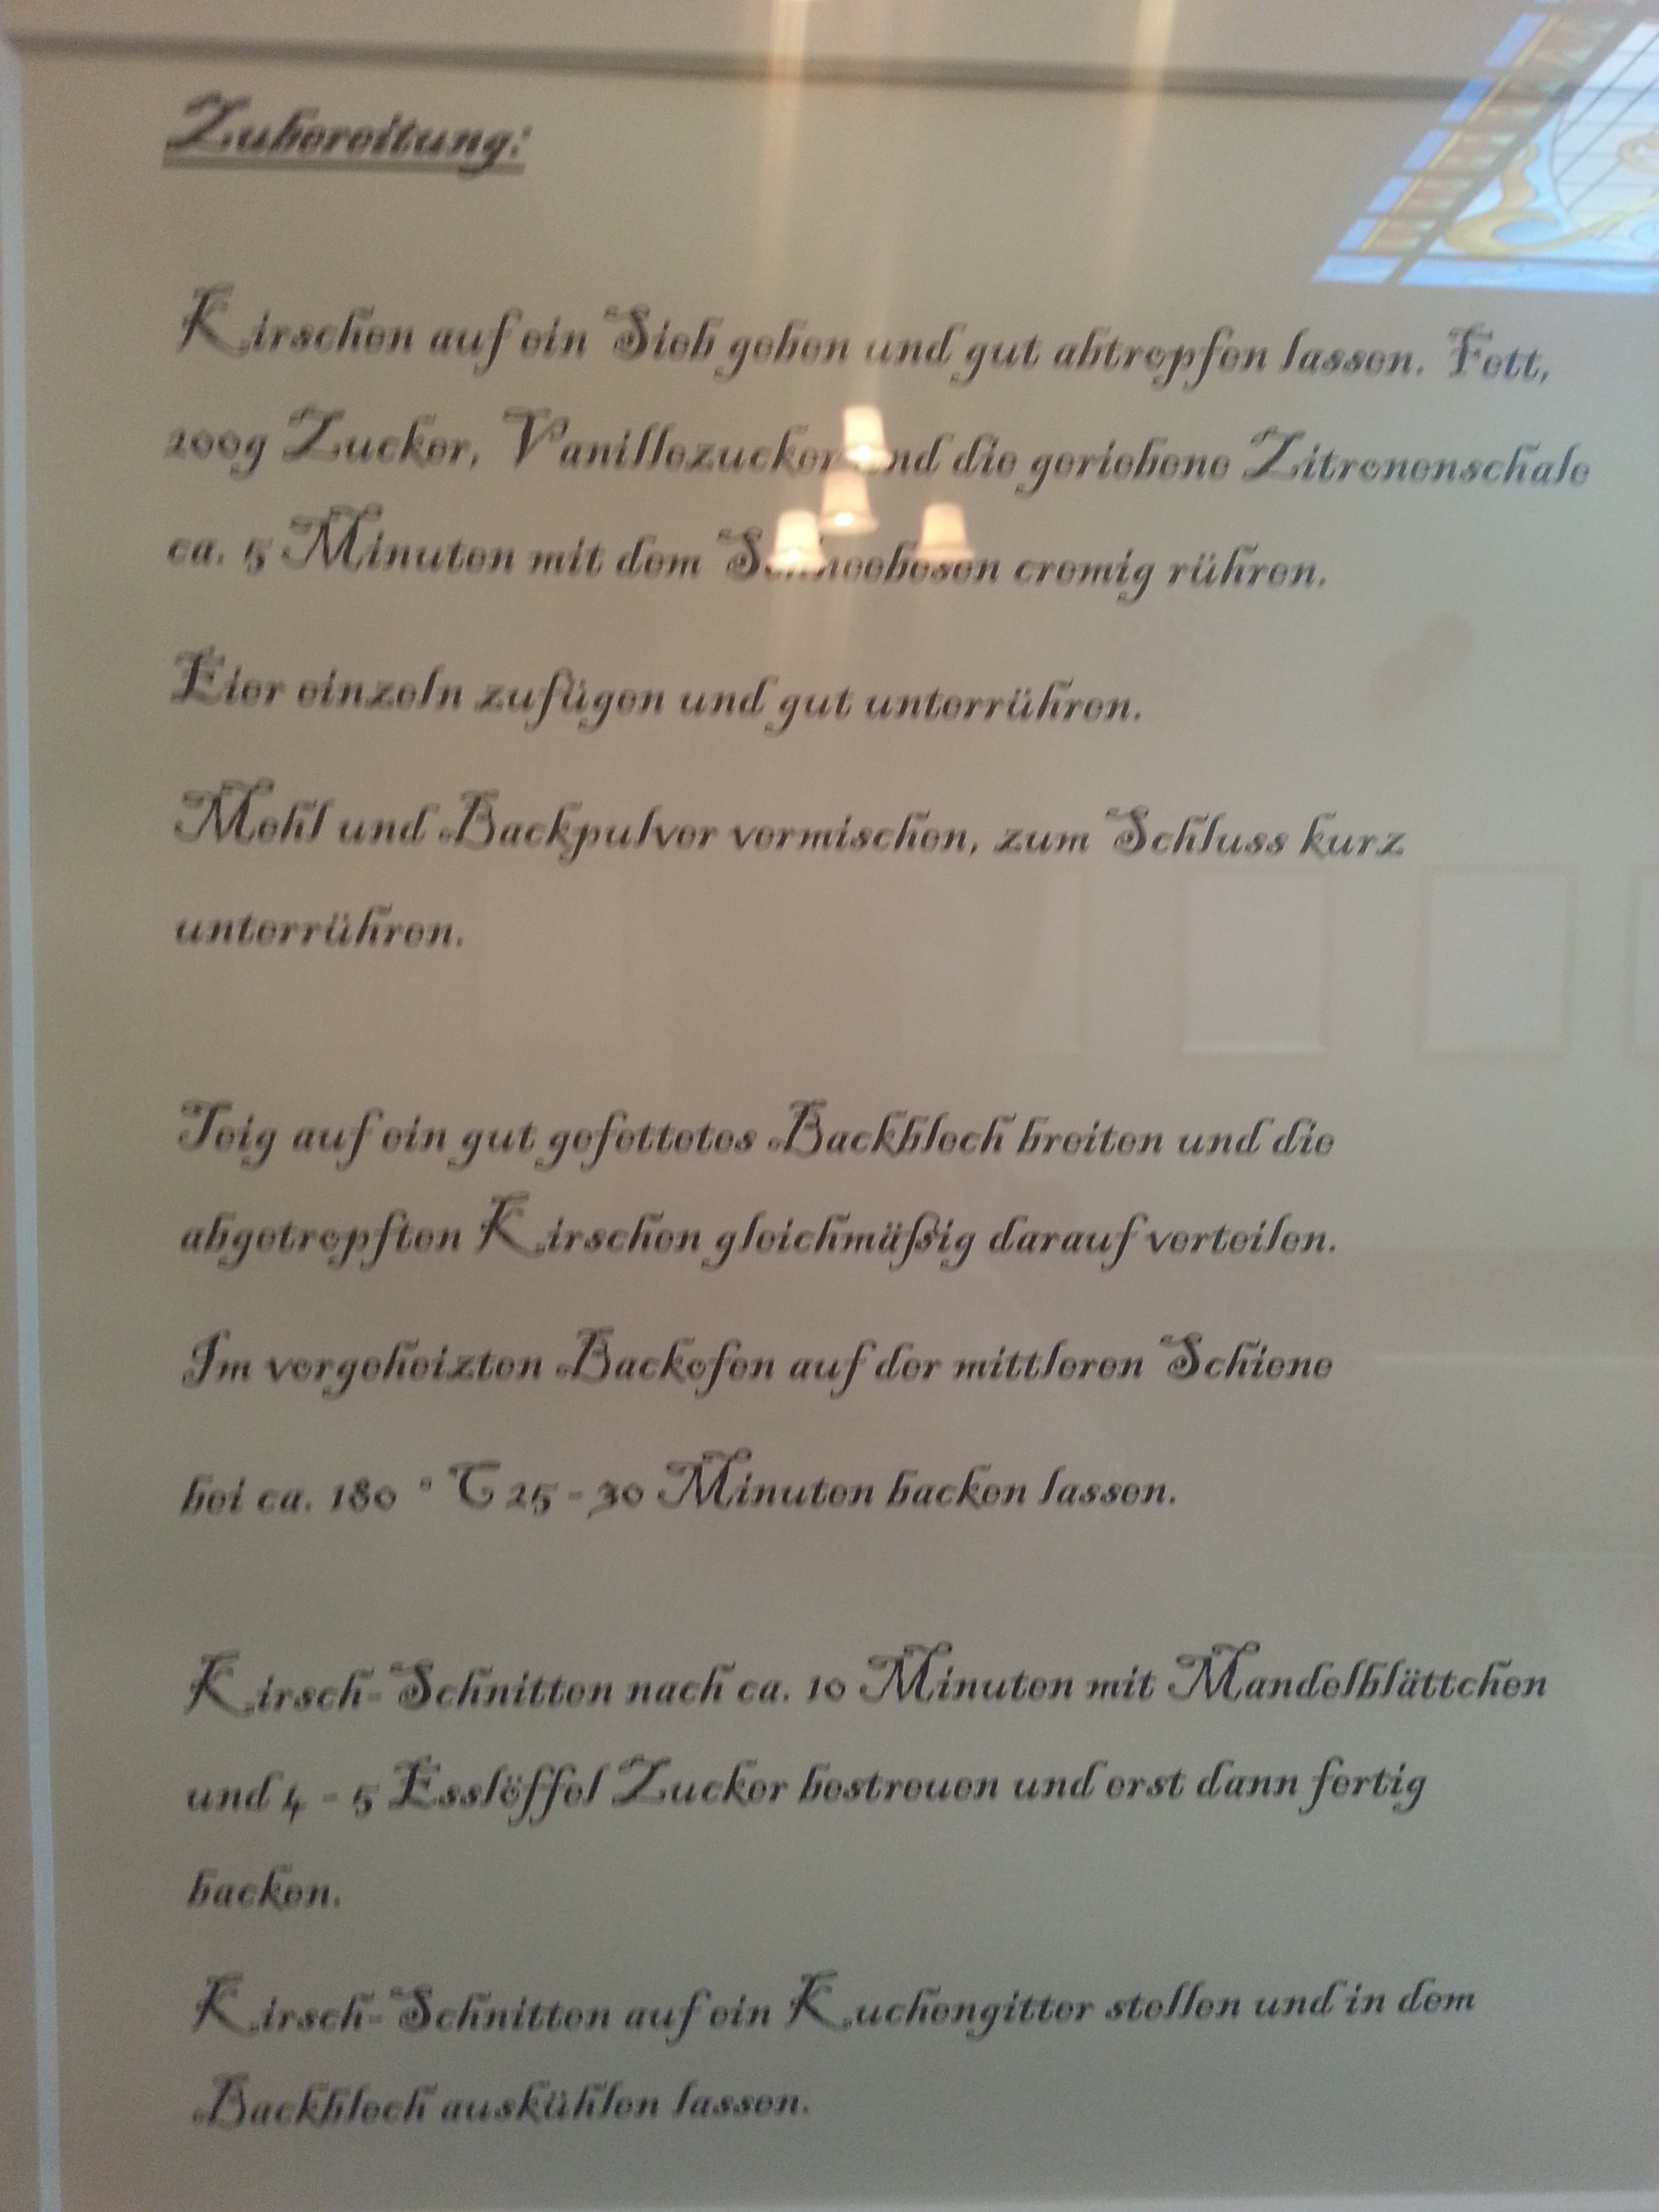 Zubereitung:
Kirschen auf ein Sieb geben und gut abtropfen lassen. Fett,
200g Zucker, Vanillezucker und die geriebene Zitronenschale
ca. 5 Minuten mit dem Schneebesen cremig rühren.
Eier einzeln zufügen und gut unterrühren.
Mehl und Backpulver vermischen, zum Schluss kurz
unterrühren.
Teig auf ein gut gefettetes Backblech breiten und die
abgetropften Kirschen gleichmäßig darauf verteilen.
Im vorgeheizten Backofen auf der mittleren Schiene
bei ca. 180 ° C 25 - 30 Minuten backen lassen.
Kirsch-Schnitten nach ca. 10 Minuten mit Mandelblättchen
und 4 - 5 Esslöffel Zucker bestreuen und erst dann fertig
backen.
Kirsch-Schnitten auf ein Kuchengitter stellen und in dem
Backblech auskühlen lassen.